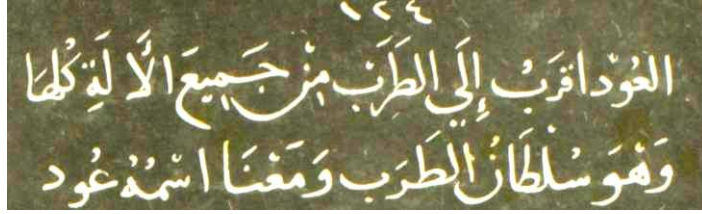 ١٢٤
العُوْد اقرَبْ إِلَي الطَرَبْ مِنْ جَمِيعَ الأَلَةِ كُلهَا
وَهْوَ سُلْطَانُ الْطَرَب وَمَعْنَا اسْمُهُ عُود